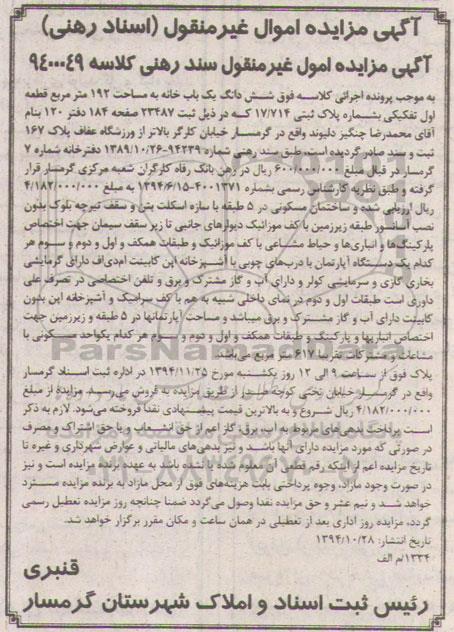 آگهی مزایده اموال غیرمنقول (اسناد رهنی)
آگهی مزایده امول غیرمنقول سند رهنی کلاسه ۹۴۰۰۰۴۹
به موجب پرونده اجرائی کلاسه فوق شش دانگ یک باب خانه به مساحت ۱۹۲ متر مربع قطعه
اول تفکیکی بشماره پلاک ثبتی ۱۷/۷۱۴ که در ذیل ثبت ۲۳۴۸۷ صفحه ۱۸۴ دفتر ۱۲۰ بنام
آقای محمدرضا چنگیز دلیوند واقع در گرمسار خیابان کارگر بالاتر از ورزشگاه عفاف پلاک ۱۶۷
ثبت و سند صادر گردیده است، طبق سند رهنی شماره ۹۴۲۳۹-۱۳۸۹/۱۰/۲۶ دفترخانه شماره ۷
گرمسار در قبال مبلغ ۶۰۰/۰۰۰/۰۰۰ ریال در رهن بانک رفاه کارگران شعبه مرکزی گرمسار قرار
گرفته و طبق نظریه کارشناس رسمی بشماره ۴۰۰۱۳۷۱-۱۳۹۴/۶/۱۵ به مبلغ ۴/۱۸۲/۰۰۰/۰۰۰
ریال ارزیابی شده و ساختمان مسکونی در ۵ طبقه با سازه اسکلت بتن و سقف تیرچه بلوک بدون
نصب آسانسور طبقه زیرزمین با کف موزائیک دیوارهای جانبی تا زیر سقف سیمان جهت اختصاص
پارکینگ‌ها و انباری‌ها و حیاط مشاعی با کف موزائیک و طبقات همکف و اول و دوم و سوم هر
کدام یک دستگاه آپارتمان با درب‌های چوبی با آشپزخانه اپن کابینت ام‌دی‌اف دارای گرمایشی
بخاری گازی و سرمایشی کولر و دارای آب و گاز مشترک و برق و تلفن اختصاصی در تصرف علی
داوری است طبقات اول و دوم در نمای داخلی شبیه به هم با کف سرامیک و آشپزخانه اپن بدون
کابینت دارای آب و گاز مشترک و برق میباشد و مساحت آپارتمانها در ۵ طبقه و زیرزمین جهت
اختصاص انباریها و پارکینگ و طبقات همکف و اول و دوم و سوم هر کدام یکواحد مسکونی با
مشاعات و مشترکات تقریبا ۶۱۷ متر مربع می‌باشد.
پلاک فوق از ساعت ۹ الی ۱۲ روز یکشنبه مورخ ۱۳۹۴/۱۱/۲۵ در اداره ثبت اسناد گرمسار
واقع در گرمسار خیابان تختی کوچه از طریق مزایده به فروش می‌رسد. مزایده از مبلغ
۴/۱۸۲/۰۰۰/۰۰۰ ریال شروع و به بالاترین قیمت پیشنهادی نقدا فروخته می‌شود. لازم به ذکر
است پرداخت بدهی‌های مربوط به آب، برق، گاز اعم از حق انشعاب و یا حق اشتراک و مصرف
در صورتی که مورد مزایده دارای آنها باشد و نیز بدهی‌های مالیاتی و عوارض شهرداری و غیره تا
تاریخ مزایده اعم از اینکه رقم قطعی آن معلوم شده یا نشده باشد به عهده برنده مزایده است و نیز
در صورت وجود مازاد، وجوه پرداختی بابت هزینه‌های فوق از محل مازاد به برنده مزایده مسترد
خواهد شد و نیم عشر و حق مزایده نقدا وصول می‌گردد ضمنا چنانچه روز مزایده تعطیل رسمی
گردد، مزایده روز اداری بعد از تعطیلی در همان ساعت و مکان مقرر برگزار خواهد شد.
تاریخ انتشار: ۱۳۹۴/۱۰/۲۸
۱۳۳۴/م الف
قنبری
رئیس ثبت اسناد و املاک شهرستان گرمسار